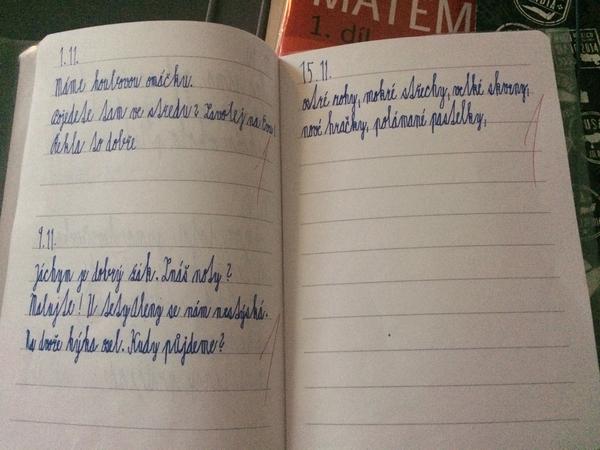 MATEM
1. díl
1.11.
Máme houbovou omáčku.
Pojedete tam ve středu? Zavolej na Evu!
Řekla to dobře
9.11.
Jáchym je dobrý žák. Znáš noty?
Malujte! U tety Heleny se nám nestýská.
Na dvoře kýhá osel. Kudy půjdeme?
15.11.
ostré rohy, mokré střechy, velké skvrny,
nové hračky, polámané pastelky,